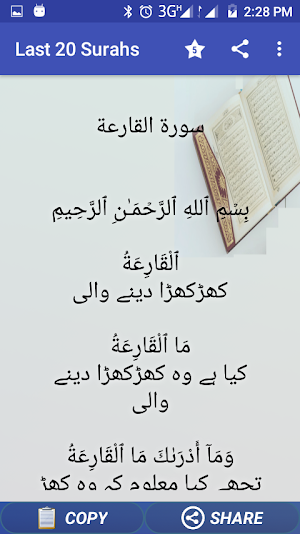 3G H 2:28 PM
Last 20 Surahs 5
سورة القارعة
بِسْمِ ٱللهِ ٱلرَّحْمَـٰنِ ٱلرَّحِيمِ
ٱلْقَارِعَةُ
کھڑکھڑا دینے والی
مَا ٱلْقَارِعَةُ
کیا ہے وہ کھڑکھڑا دینے
والی
وَمَآ أَدْرَىٰكَ مَا ٱلْقَارِعَةُ
تجھے کیا معلوم کہ وہ کھڑ
COPY SHARE